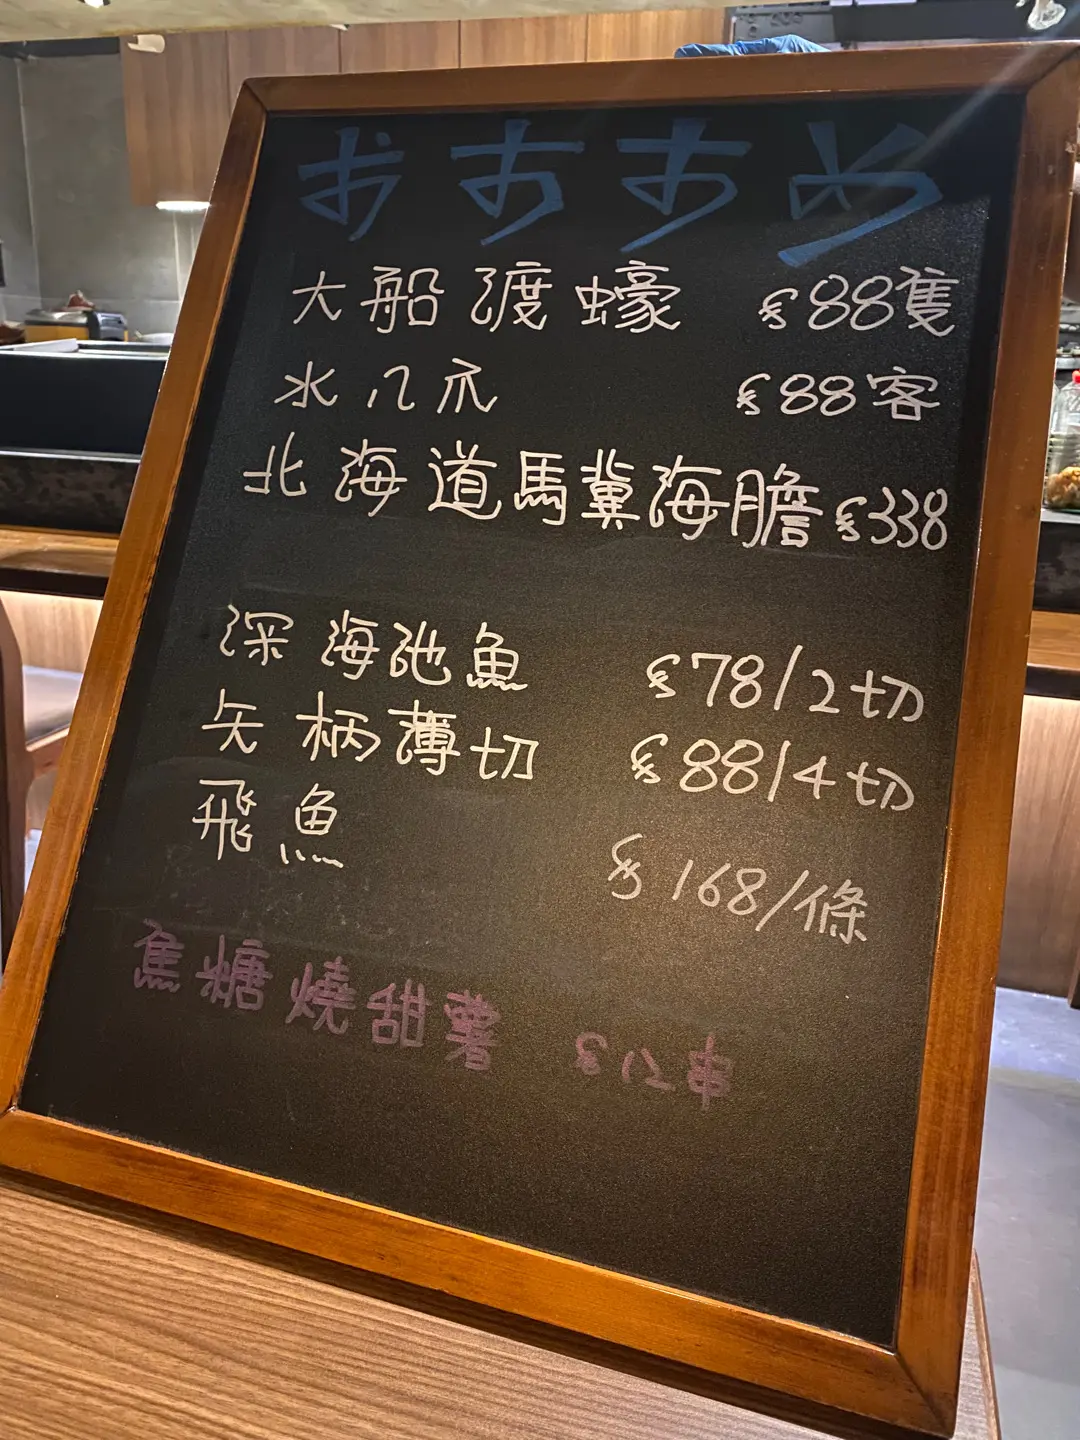 おすすめ
大船渡蠔 $88隻
水八爪 $88客
北海道馬糞海膽 $338
深海池魚 $78/2切
矢柄薄切 $88/4切
飛魚 $168/條
焦糖燒甜薯 $12串